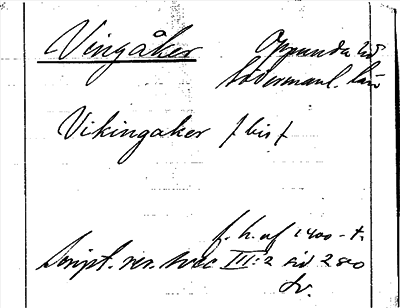 Vingåker
Oppunda hd
Södermanl. län
Vikingaker / bis /
f. h. af 1400-t.
Script. rer. svec III:2 sid 280